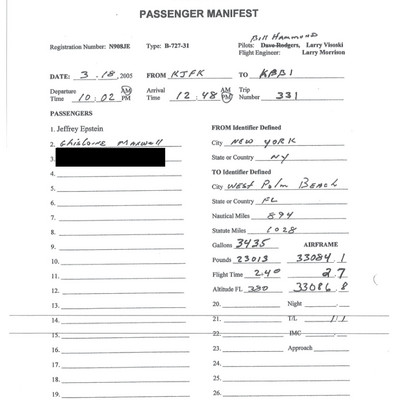 PASSENGER MANIFEST
Bill Hammond
Registration Number: N908JE Type: B-727-31 Pilots: Dave Rodgers, Larry Visoski
Flight Engineer: Larry Morrison
DATE: 3.18,2005 FROM KJFK TO KPBI
Departure AM Arrival AM Trip
Time 10:02 PM Time 12:48 PM Number 331
PASSENGERS
1. Jeffrey Epstein FROM Identifier Defined
2. Ghislaine Maxwell City NEW YORK
3. State or Country NY
4. TO Identifier Defined
5. City WEST Palm BEACH
6. State or Country FL
7. Nautical Miles 894
8. Statute Miles 1028
9. Gallons 3435 AIRFRAME
10. Pounds 23013 33084.1
11. Flight Time 2.40 2.7
12. Altitude FL 380 33086.8
13. 20. Night .
14. 21. T/L 1/1
15. 22. IMC .
16. 23. Approach
17. 24.
18. 25.
19. 26.